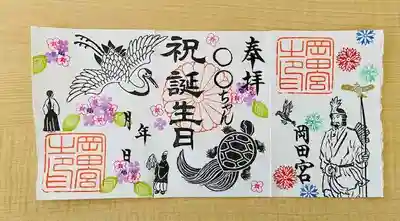 奉拝
〇〇ちゃん
祝誕生日
年
月
日
岡田宮
岡田宮